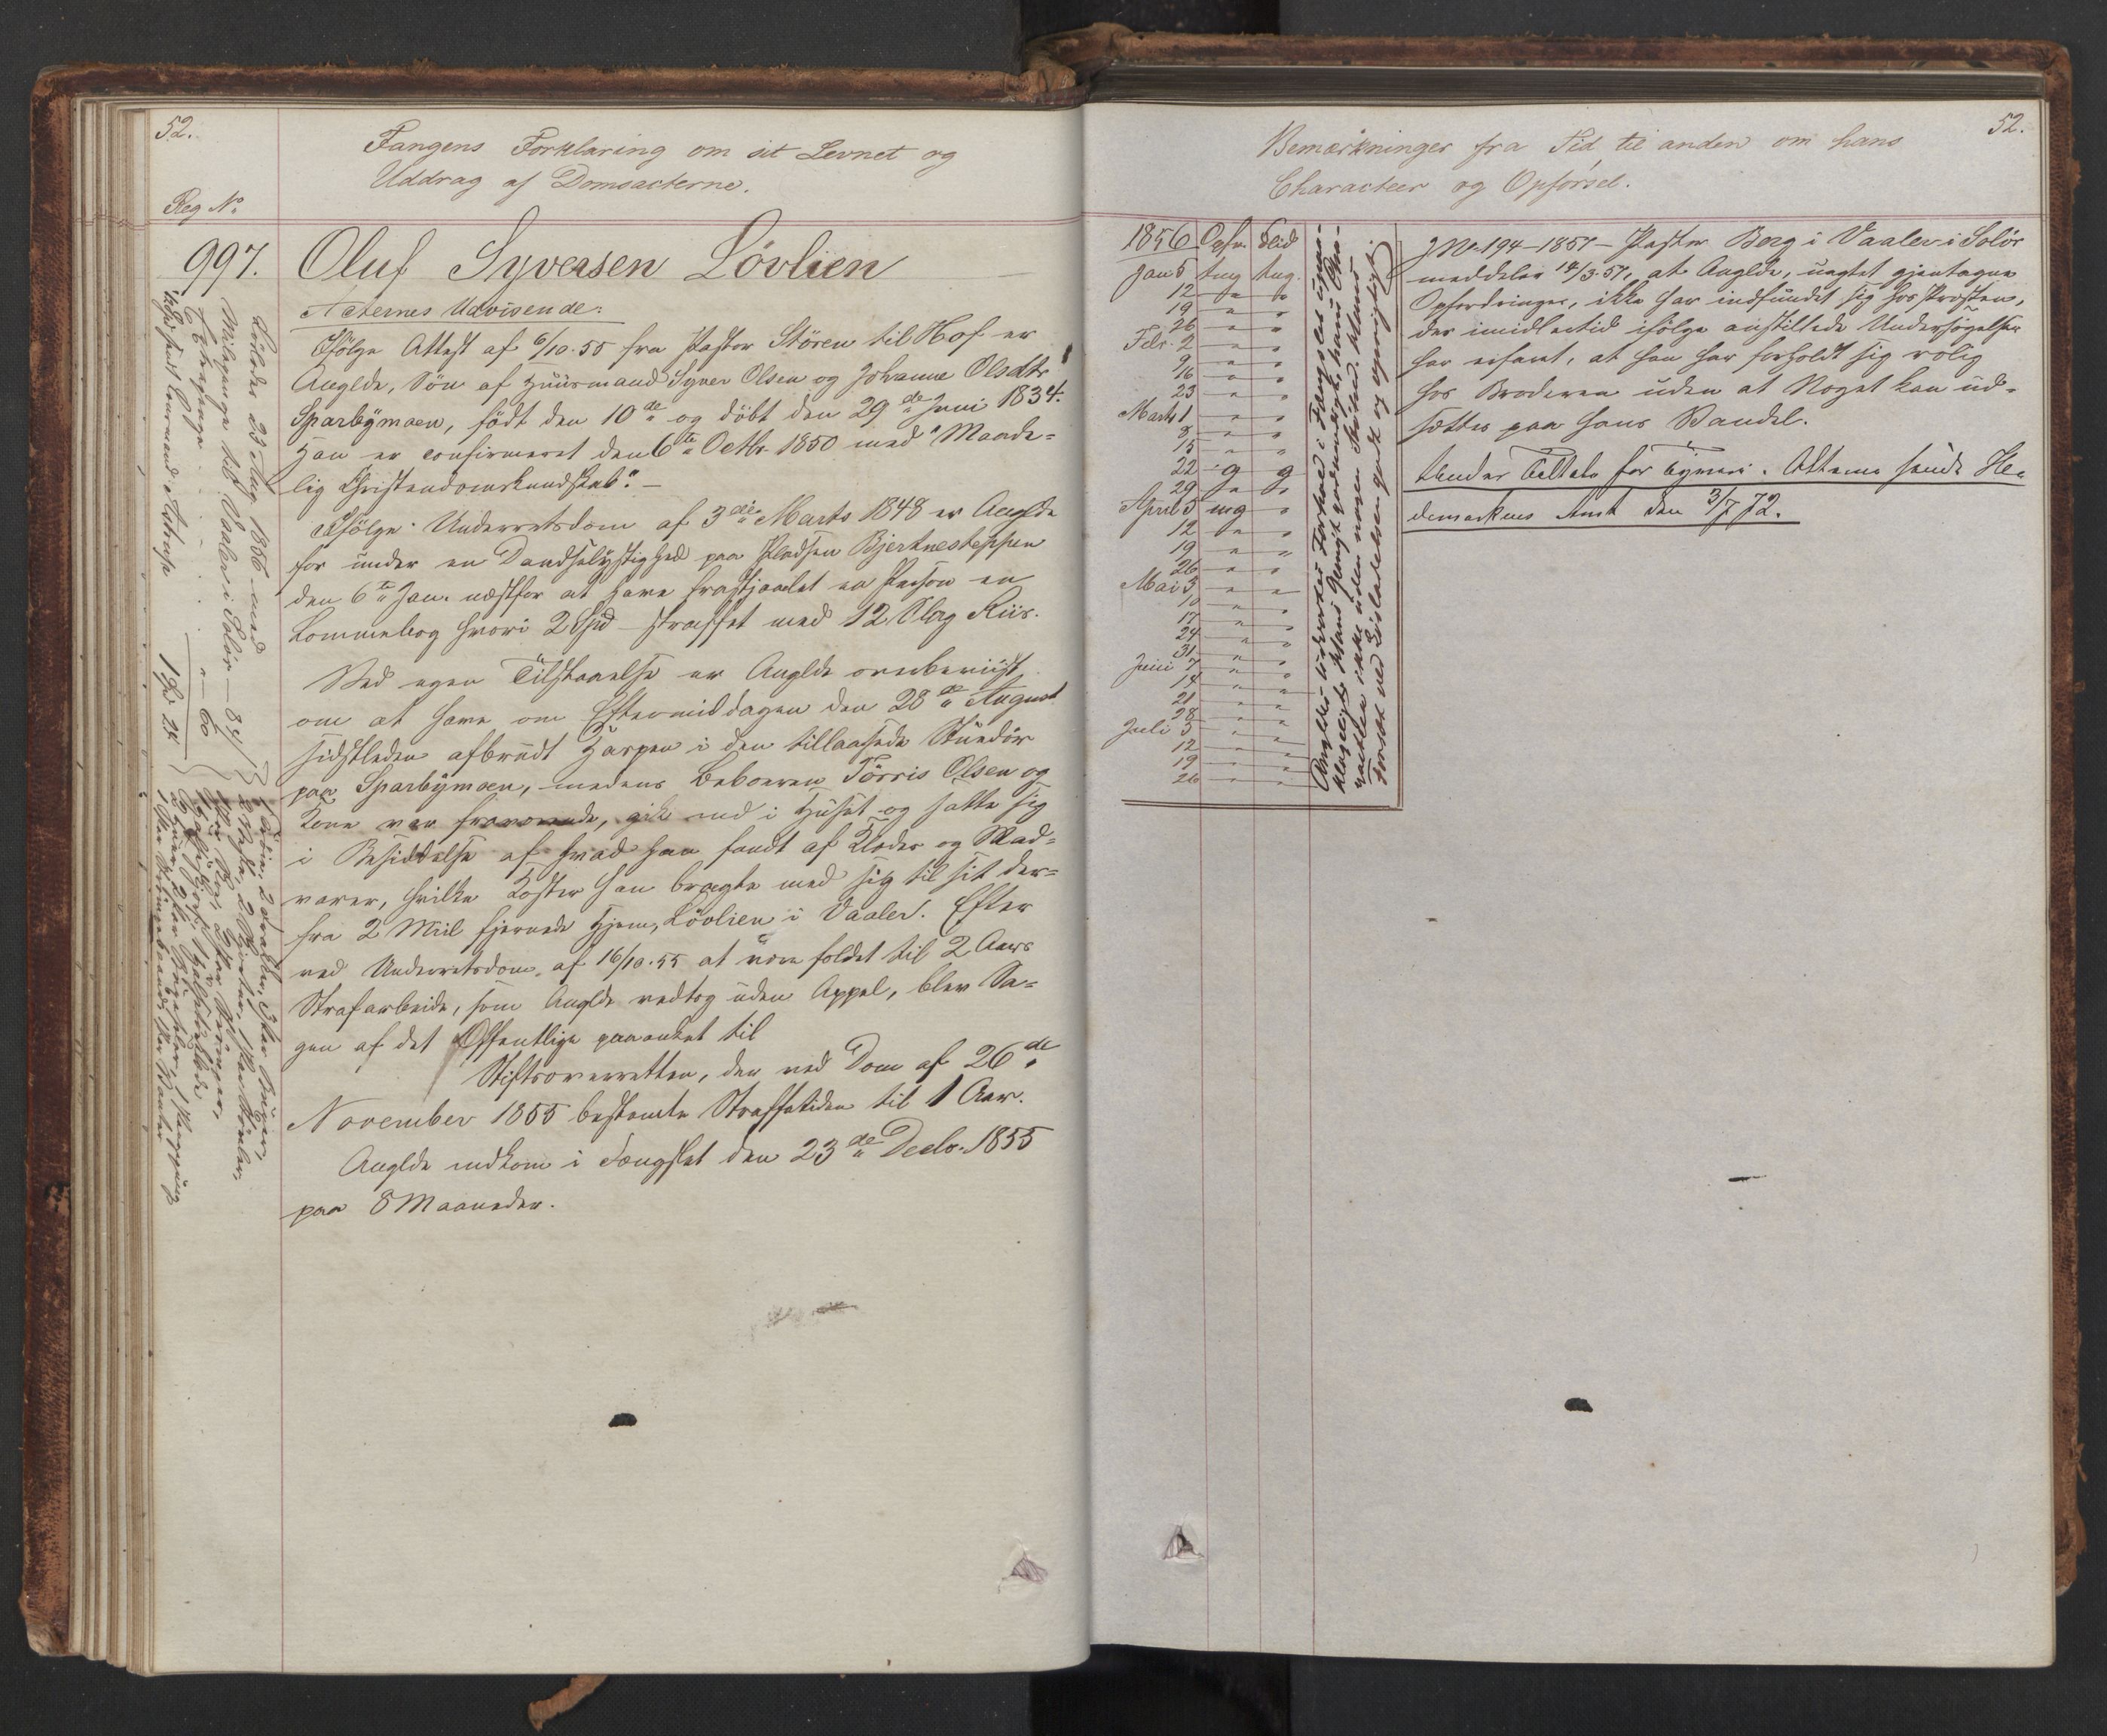 52.
Fangens Forklaring om sit Levnet og
Uddrag af Domsacterne.
Reg No
997.
Oluf Syversen Lövlien
Acternes Udvisende:
Ifölge Attest af 6/10.55 fra Pastor Stören til Hof er
Anglde, Sön af Huusmand Syver Olsen og Johanne Olsdtr
Sparbymoen, födt den 10de og döbt den 29de Juni 1834.
Han er confirmeret den 6te Octbr. 1850 med "Maade-
lig Christendomskundskab". –
Ifölge Underretsdom af 3die Marts 1848 er Anglde
for under en Dandselystighed paa Pladsen Bjertnesteppen
den 6te Jan. næstfor at have frastjaalet en Person en
Lommebog hvori 2 Spd straffet med 12 Slag Riis.
Ved egen Tilstaaelse er Anglde overbeviist
om at have om Eftermiddagen den 28de August
sidstleden afbrudt Haspen i den tillaasede Stuedör
paa Sparbymoen, medens Beboeren Törris Olsen og
Kone var fraværende, gik ind i Huset og satte sig
i Besiddelse af hvad han fandt af Klæder og Mad-
varer, hvilke Koster han bragte med sig til sit der-
fra 2 Miil fjernede Hjem, Lövlien i Vaaler. Efter
ved Underretsdom af 16/10.55 at være foldet til 2 Aars
Strafarbeide, som Anglde vedtog uden Appel, blev Sa-
gen af det Offentlige paaanket til
Stiftsoverretten, der ved Dom af 26de
November 1855 bestemte Straffetiden til 1 Aar.
Anglde indkom i Fængslet den 23de Decbr. 1855
paa 8 Maaneder.
Löslades 23 Aug. 1856 med
Miilepenge til Vaaler i Solör
Tærepenge
1 Spd 24
52.
Bemærkninger fra Tid til anden om hans
Characteer og Opförsel.
1856 Opf. Flid
Jan 5 tug tug.
12 " "
19 " "
26 " "
Febr. 2 " "
9 " "
16 " "
23 " "
Marts 1 " "
8 " "
15 " "
22 g g
29 " "
April 5 mg "
12 " "
19 " "
26 " "
Mai 3 " "
10 " "
17 " "
24 " "
31 " "
Juni 7 " "
14 " "
21 " "
28 " "
Juli 5 " "
12 " "
19 " "
26 " "
J No 194-1857 – Pastor Berg i Vaaler i Solör
meddeler 14/3.57, at Anglde, uagtet gjentagne
Opfordringer, ikke har indfundet sig hos Præsten,
der imidlertid ifölge anstillede Undersögelser
har erfaret, at han har forholdt sig rolig
hos Broderen uden at Noget kan ud-
sættes paa hans Vandel.
Under Tiltale for Tyveri. Attesten sendt He-
demarkens Amt den 3/7 72.